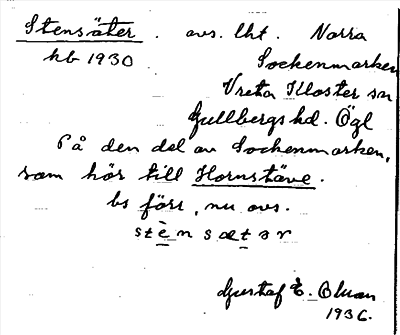 Stensäter. avs. lht. Norra
kb 1930 Sockenmarken
Vreta Kloster sn
Gullbergs hd. Ögl
På den del av Sockenmarken,
som hör till Hornstäve.
bs förr, nu avs.
stènsætər
Gustaf E.
1936.